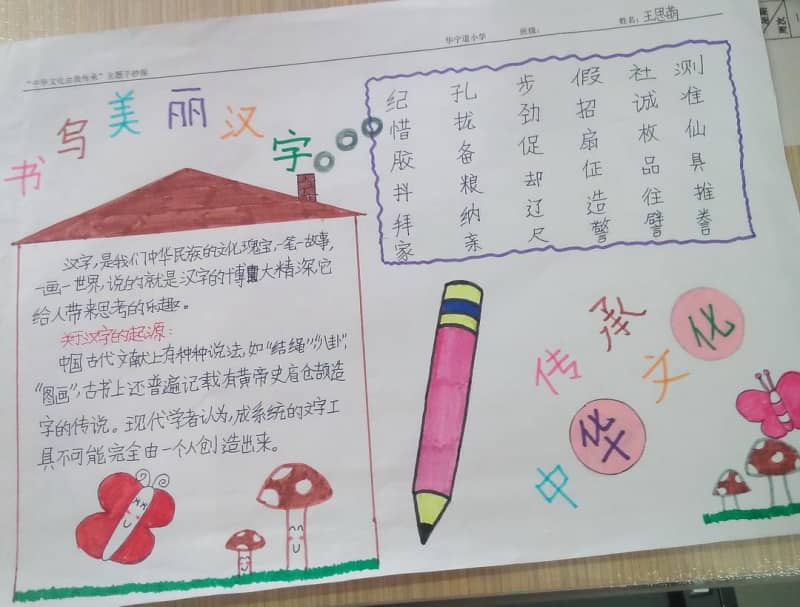 "中华文化由我传承"主题手抄报
华宁道小学 班级: 姓名:王思萌
书写美丽汉字
纪 孔 步 假 社 测
惜 拔 劲 招 诚 准
胶 备 促 扇 枚 仙
抖 粮 却 征 品 具
拜 纳 辽 造 往 推
家 亲 尺 警 譬 誊
汉字,是我们中华民族的文化瑰宝,一笔一故事,
一画一世界,说的就是汉字的博大精深,它
给人带来思考的乐趣。
关于汉字的起源:
中国古代文献上有种种说法,如"结绳""八卦",
"图画",古书上还普遍记载有黄帝史官仓颉造
字的传说。现代学者认为,成系统的文字工
具不可能完全由一个人创造出来。
传承
中华文化